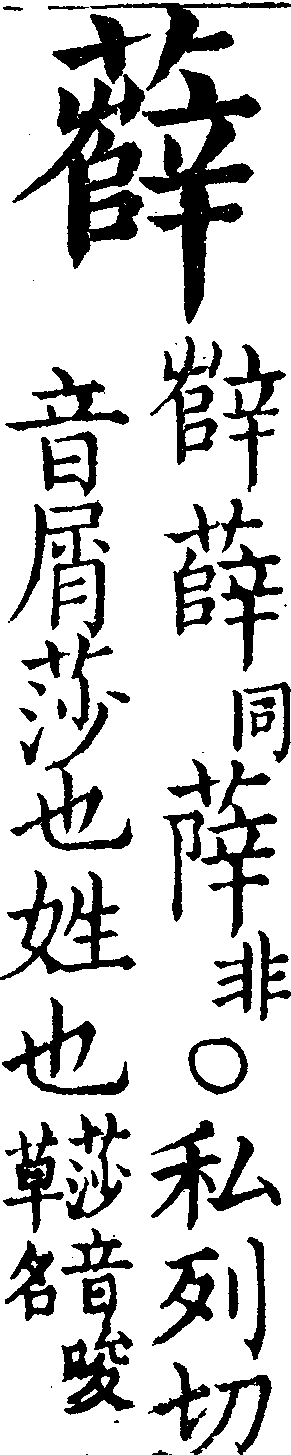 𧀼
辥薛同
非〇私列切
音屑莎也姓也
莎音唆
草名